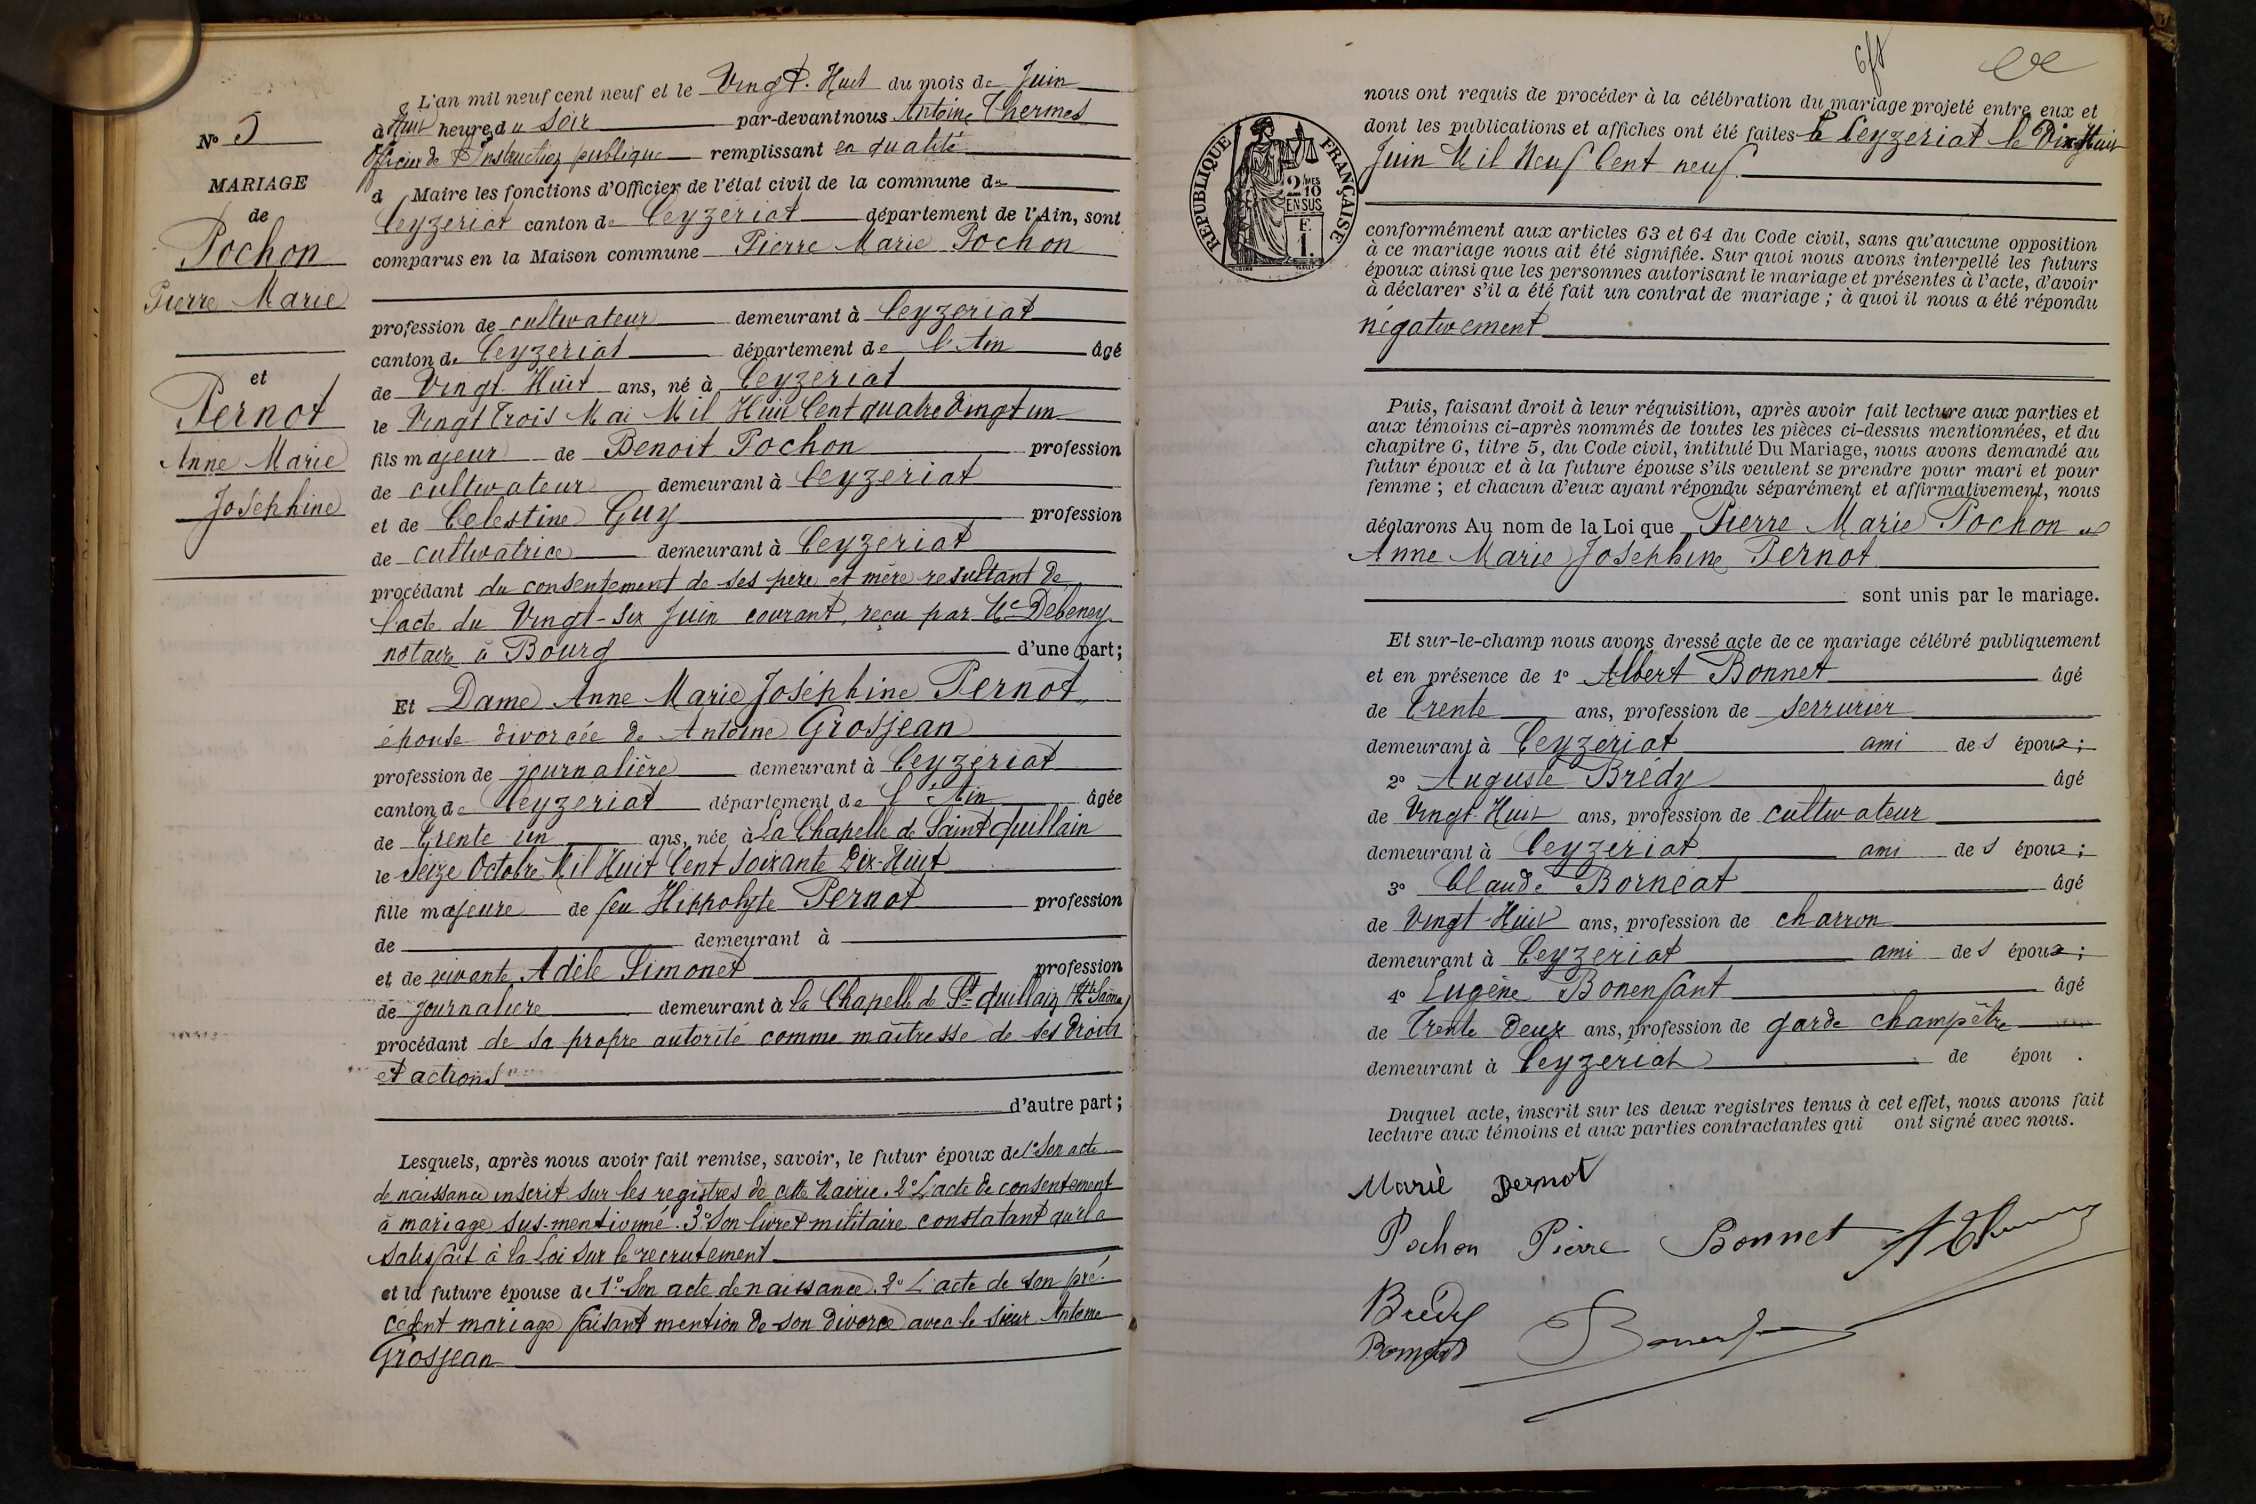 N° 5
MARIAGE
de
Pochon
Pierre Marie
et
Pernot
Anne Marie
Joséphine
L'an mil neuf cent neuf et le Vingt-Huit du mois de Juin
à Huit heure du Soir par-devant nous Antoine Thermes
Officier de l'Instruction publique remplissant en qualité
d Maire les fonctions d'Officier de l'état civil de la commune de
Ceyzeriat canton de Ceyzériat département de l'Ain, sont
comparus en la Maison commune Pierre Marie Pochon
profession de cultivateur demeurant à Ceyzeriat
canton de Ceyzeriat département de l'Ain âgé
de Vingt-Huit ans, né à Ceyzeriat
le Vingt Trois Mai Mil Huit Cent quatre vingt un
fils majeur de Benoit Pochon profession
de cultivateur demeurant à Ceyzeriat
et de Celestine Guy profession
de cultivatrice demeurant à Ceyzeriat
procédant du consentement de ses père et mère resultant de
l'acte du Vingt-six Juin courant, reçu par Me Debeney
notaire à Bourg d'une part;
Et Dame Anne Marie Joséphine Pernot,
épouse divorcée de Antoine Grosjean
profession de journalière demeurant à Ceyzériat
canton de Ceyzeriat département de l'Ain âgée
de Trente un ans, née à La Chapelle de Saint Quillain
le Seize Octobre Mil Huit Cent Soixante Dix-Huit
fille majeure de feu Hippolyte Pernot profession
de demeurant à
et de vivante Adèle Simonet profession
de journalière demeurant à la Chapelle de St Quillain (Hte Saône)
procédant de sa propre autorité comme maîtresse de ses droits
et actions
d'autre part;
Lesquels, après nous avoir fait remise, savoir, le futur époux de 1° Son acte
de naissance inscrit sur les registres de cette Mairie. 2° L'acte de consentement
à mariage sus-mentionné. 3° Son livret militaire constatant qu'il a
satisfait à la Loi sur le recrutement
et la future épouse de 1° Son acte de naissance. 2° L'acte de son pré-
cédent mariage faisant mention de son divorce avec le sieur Antoine
Grosjean
REPUBLIQUE FRANÇAISE
2/10 MES
EN SUS
F.
1.
nous ont requis de procéder à la célébration du mariage projeté entre eux et
dont les publications et affiches ont été faites à Ceyzeriat le Dix Huit
Juin Mil Neuf Cent neuf.
conformément aux articles 63 et 64 du Code civil, sans qu'aucune opposition
à ce mariage nous ait été signifiée. Sur quoi nous avons interpellé les futurs
époux ainsi que les personnes autorisant le mariage et présentes à l'acte, d'avoir
à déclarer s'il a été fait un contrat de mariage ; à quoi il nous a été répondu
négativement
Puis, faisant droit à leur réquisition, après avoir fait lecture aux parties et
aux témoins ci-après nommés de toutes les pièces ci-dessus mentionnées, et du
chapitre 6, titre 5, du Code civil, intitulé Du Mariage, nous avons demandé au
futur époux et à la future épouse s'ils veulent se prendre pour mari et pour
femme ; et chacun d'eux ayant répondu séparément et affirmativement, nous
déclarons Au nom de la Loi que Pierre Marie Pochon et
Anne Marie Joséphine Pernot
sont unis par le mariage.
Et sur-le-champ nous avons dressé acte de ce mariage célébré publiquement
et en présence de 1° Albert Bonnet âgé
de Trente ans, profession de serrurier
demeurant à Ceyzeriat ami des époux ;
2° Auguste Brédy âgé
de Vingt-Huit ans, profession de cultivateur
demeurant à Ceyzériat ami des époux ;
3° Claude Borneat âgé
de Vingt-Huit ans, profession de charron
demeurant à Ceyzeriat ami des époux ;
4° Eugène Bonenfant âgé
de Trente Deux ans, profession de garde champêtre
demeurant à Ceyzériat de épou .
Duquel acte, inscrit sur les deux registres tenus à cet effet, nous avons fait
lecture aux témoins et aux parties contractantes qui ont signé avec nous.
Marie Pernot
Pochon Pierre Bonnet
Brédy